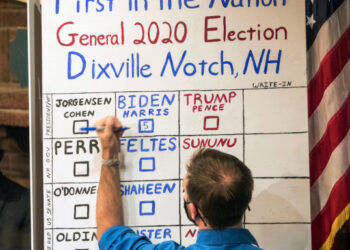 First in the Nation
General 2020 Election
Dixville Notch, NH
WRITE-IN
PRESIDENT/VP
JORGENSEN
COHEN
BIDEN
HARRIS
5
TRUMP
PENCE
NH GOV
PERR
FELTES
SUNUNU
US SENATE
O'DONNE
SHAHEEN
REP US CONG
OLDING